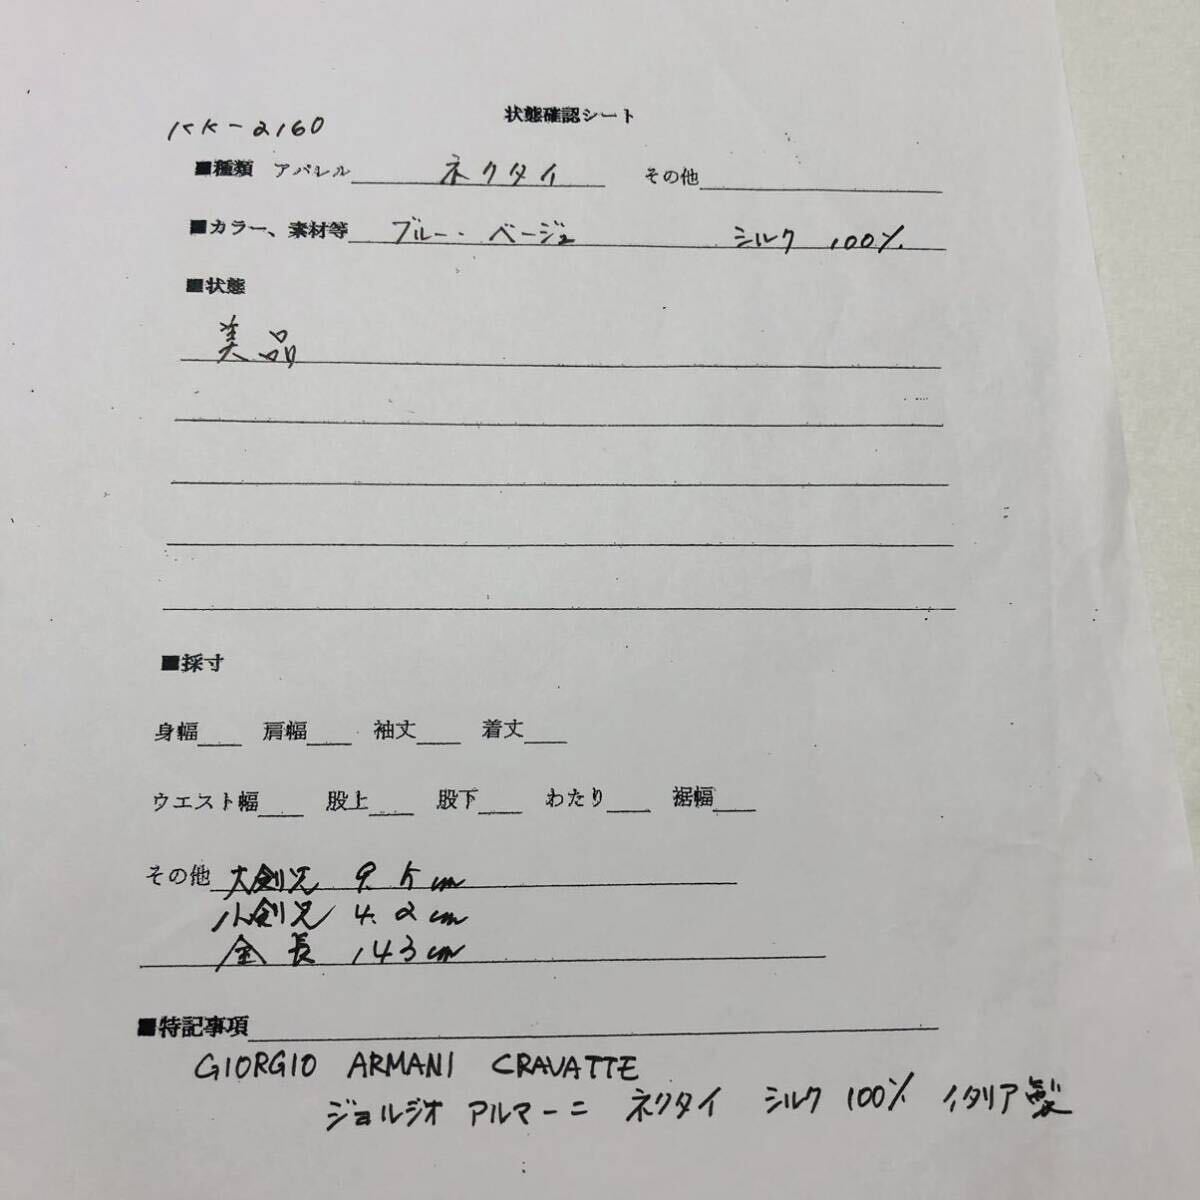 状態確認シート
KK-2160
■種類 アパレル ネクタイ その他
■カラー、素材等 ブルー・ベージュ シルク 100%
■状態
美品
■採寸
身幅 肩幅 袖丈 着丈
ウエスト幅 股上 股下 わたり 裾幅
その他 大剣先 9.5cm
小剣先 4.2cm
全長 143cm
■特記事項
GIORGIO ARMANI CRAVATTE
ジョルジオ アルマーニ ネクタイ シルク 100% イタリア製